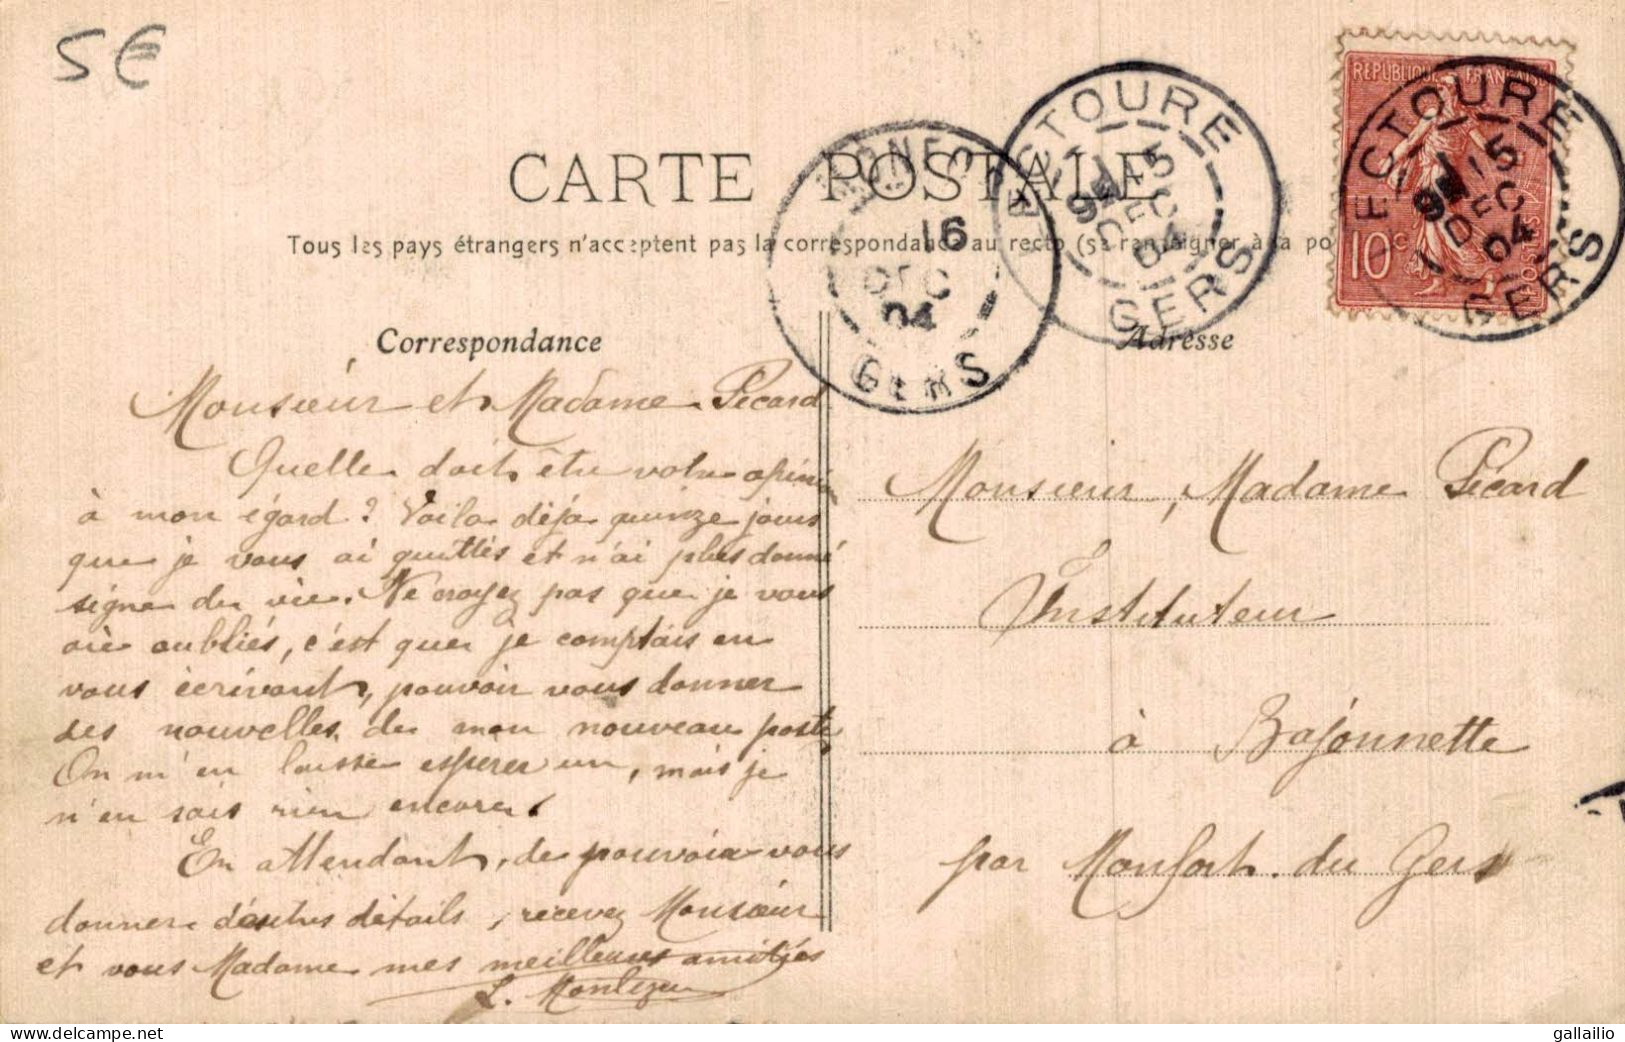 5€
CARTE POSTALE
Tous les pays étrangers n'acceptent pas la correspondance au recto (se renseigner à la po
RÉPUBLIQUE FRANÇAISE
10c
POSTES
LECTOURE
15
DEC
04
GERS
LECTOURE
15
DEC
04
GERS
16
DEC
04
GERS
Correspondance
Monsieur et Madame Pécard
Quelle doit être votre opini
à mon égard? Voila déjà quinze jours
que je vous ai quittés et n'ai plus donné
signe de vie. Ne croyez pas que je vous
aie oubliés, c'est que je comptais en
vous écrivant, pouvoir vous donner
des nouvelles de mon nouveau poste,
On m'en laisse espérer un, mais je
n'en sais rien encore.
En attendant, de pouvoir vous
donner d'autres détails, recevez Monsieur
et vous Madame mes meilleures amitiés
L.
Adresse
Monsieur, Madame Pécard
Instituteur
à Bajonnette
par Monfort du Gers
gallailio